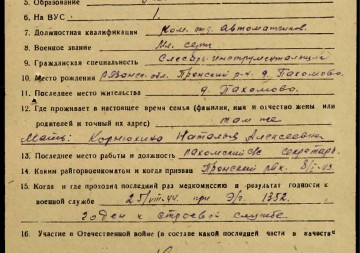 5. Образование
6. На ВУС
7. Должностная квалификация Ком. отд. автоматчиков.
8. Военное звание Мл. серж.
9. Гражданская специальность Слесарь-инструментальщик
10. Место рождения Рязанск. обл. Пронский р-н д. Пахомово.
11. Последнее место жительства д. Пахомово.
12. Где проживает в настоящее время семья (фамилия, имя и отчество жены или
родителей и точный их адрес) там же
Мать: Корнюхина Наталья Алексеевна
13. Последнее место работы и должность секретарь.
14. Каким райгорвоенкоматом и когда призван Пронский рвк.
15. Когда и где проходил последний раз медкомиссию и результат годности к
военной службе 25/VIII-44. при Э/г. 1352.
годен к строевой службе
16. Участие в Отечественной войне (в составе какой последней части в качестве